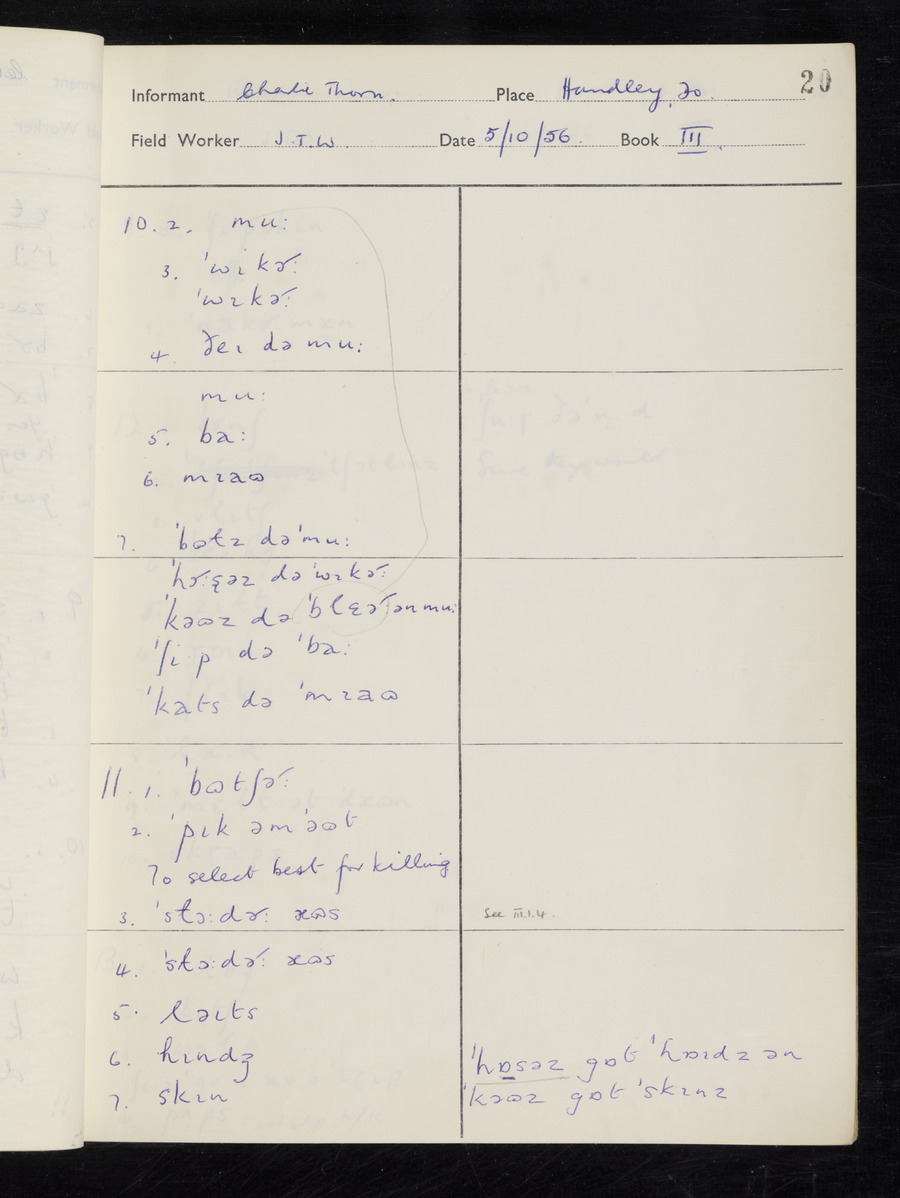 20
Informant Charlie Thorn. Place Handley, Do.
Field Worker J.T.W. Date 5/10/56. Book III.
10. 2. mu:
3. ˈwɪkə˞:
ˈwɪkə˞:
4. ðeɪ də mu:
mu:
5. ba:
6. mɪaʊ
7. ˈbʊɫz də ˈmu:
də ˈwɪkə˞:
ˈkəʊz də ˈblɛə˞ ən mu:
ˈʃip də ˈba:
ˈkats də ˈmɪaʊ
11. 1. ˈbʊtʃə˞:
2. ˈpɪk əm ˈəʊt
To select best for killing
3. ˈstɔ:də˞: æʊs
See III.1.4.
4. ˈstɔ:də˞: æʊs
5. ləɪts
6. hɪndʒ
ˈhɒsəz gɒt ˈhɒɪdz ən
7. skɪn
ˈkəʊz gɒt ˈskɪnz